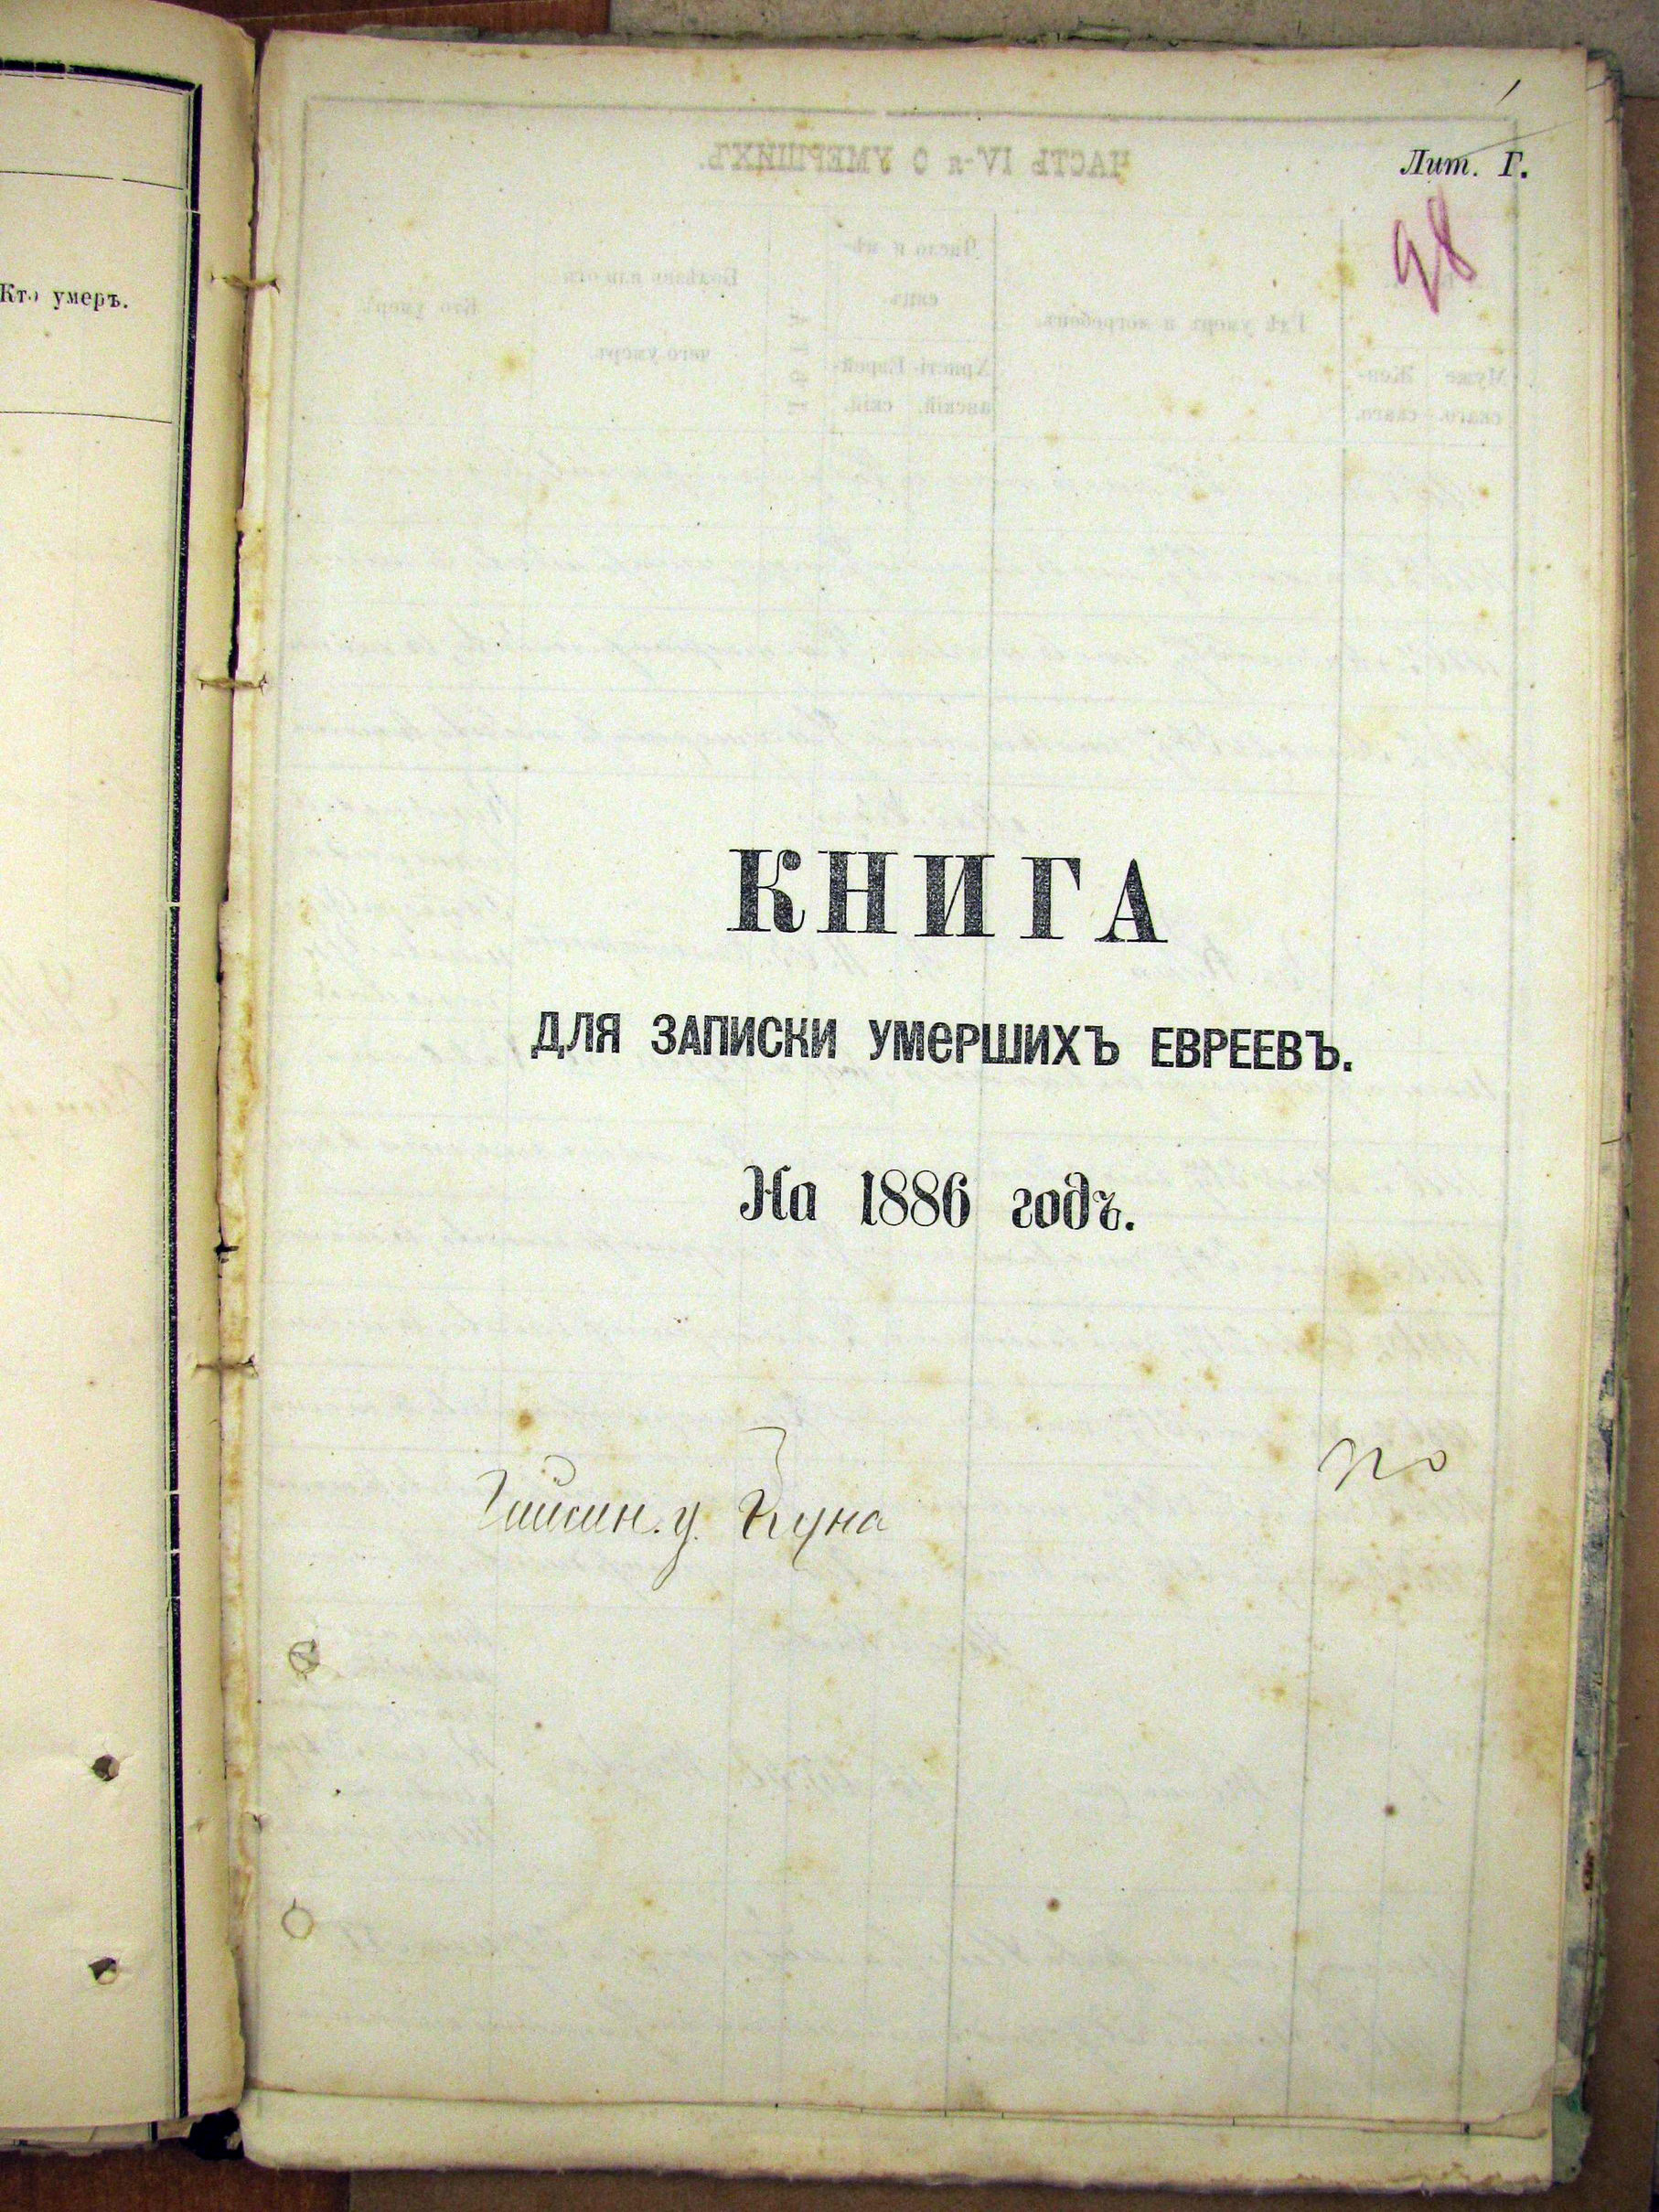 Кто умеръ.
Лит. Г.
98
КНИГА
ДЛЯ ЗАПИСКИ УМЕРШИХЪ ЕВРЕЕВЪ.
На 1886 годъ.
Гайсин. у. Куна